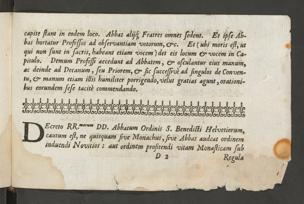 capite stant in eodem loco. Abbas aliiq; Fratres omnes sedent. Et ipse Ab-
bas hortatur Professos ad observantiam votorum, &c. Et (ubi moris est, ut
qui non sunt in sacris, habeant etiam vocem) det eis locum & vocem in Ca-
pitulo. Demum Professi accedunt ad Abbatem, & osculantur eius manum,
ac deinde ad Decanum, seu Priorem, & sic successivè ad singulos de Conven-
tu, & manum etiam illis humiliter porrigendo, velut gratias agunt, orationi-
bus eorundem sese tacitè commendando.
Decreto RR.morum DD. Abbatum Ordinis S. Benedicti Helvetiorum,
cautum est, ne quisquam sive Monachus, sive Abbas audeat ordinem
induendi Novitios: aut ordinem profitendi vitam Monasticam sub
D 2
Regula